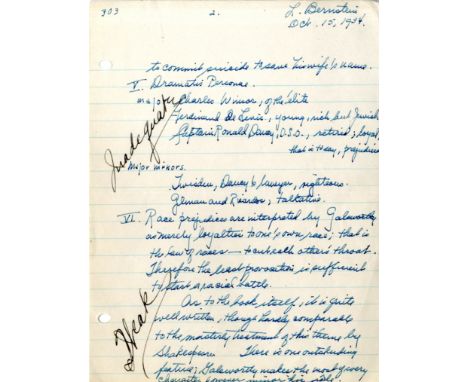 303
2.
L. Bernstein
Oct. 15, 1934.
to commit suicide to save his wife's name.
V. Dramatis Personae.
major
Charles Winsor, of the élite
Ferdinand De Levis, young, rich but Jewish
Captain Ronald Dancy, D.S.O., retired; loyal,
that is to say, prejudiced
Inadequate
Major minors.
Twisden, Dancy's lawyer, righteous.
Gilman and Ricardos; talkative.
VI. Race prejudices are interpreted by Galsworthy
as merely loyalties to one's own race; that is
the law of races — to cut each other's throat.
Therefore the least provocation is sufficient
to start a racial battle.
Weak
As to the book, itself, it is quite
well written, though hardly comparable
to the masterly treatment of this theme by
Shakespeare. There is one outstanding
feature; Galsworthy makes the most of every
character, however minor his